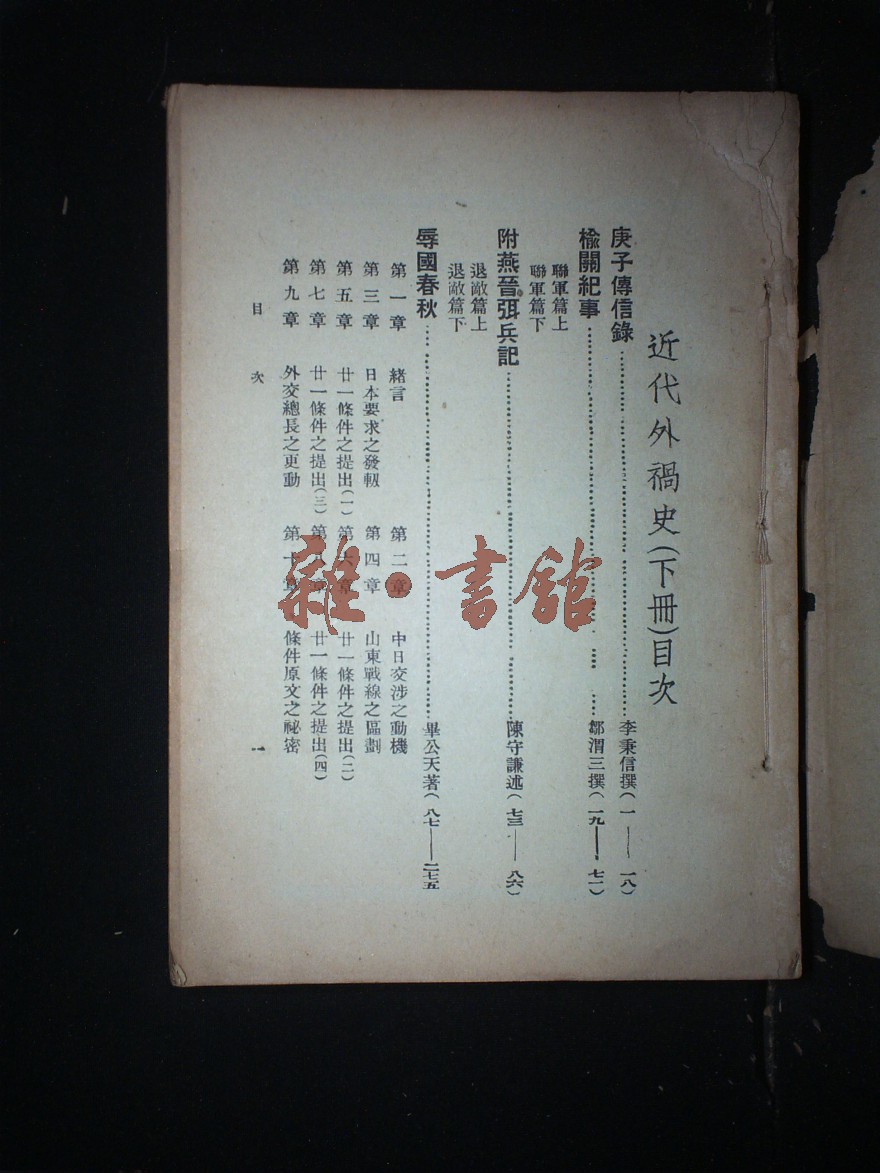 近代外禍史(下冊)目次
庚子傳信錄……李秉信撰(一——一八)
榆關紀事……鄒渭三撰(一九——七一)
聯軍篇上
聯軍篇下
附燕晉弭兵記……陳守謙述(七三——八六)
退敵篇上
退敵篇下
辱國春秋……畢公天著(八七——二七五
第一章 緒言 第二章 中日交涉之動機
第三章 日本要求之發軔 第四章 山東戰線之區劃
第五章 廿一條件之提出(一) 第六章 廿一條件之提出(二)
第七章 廿一條件之提出(三) 第八章 廿一條件之提出(四)
第九章 外交總長之更動 第十章 條件原文之祕密
目次 一
雜·書館